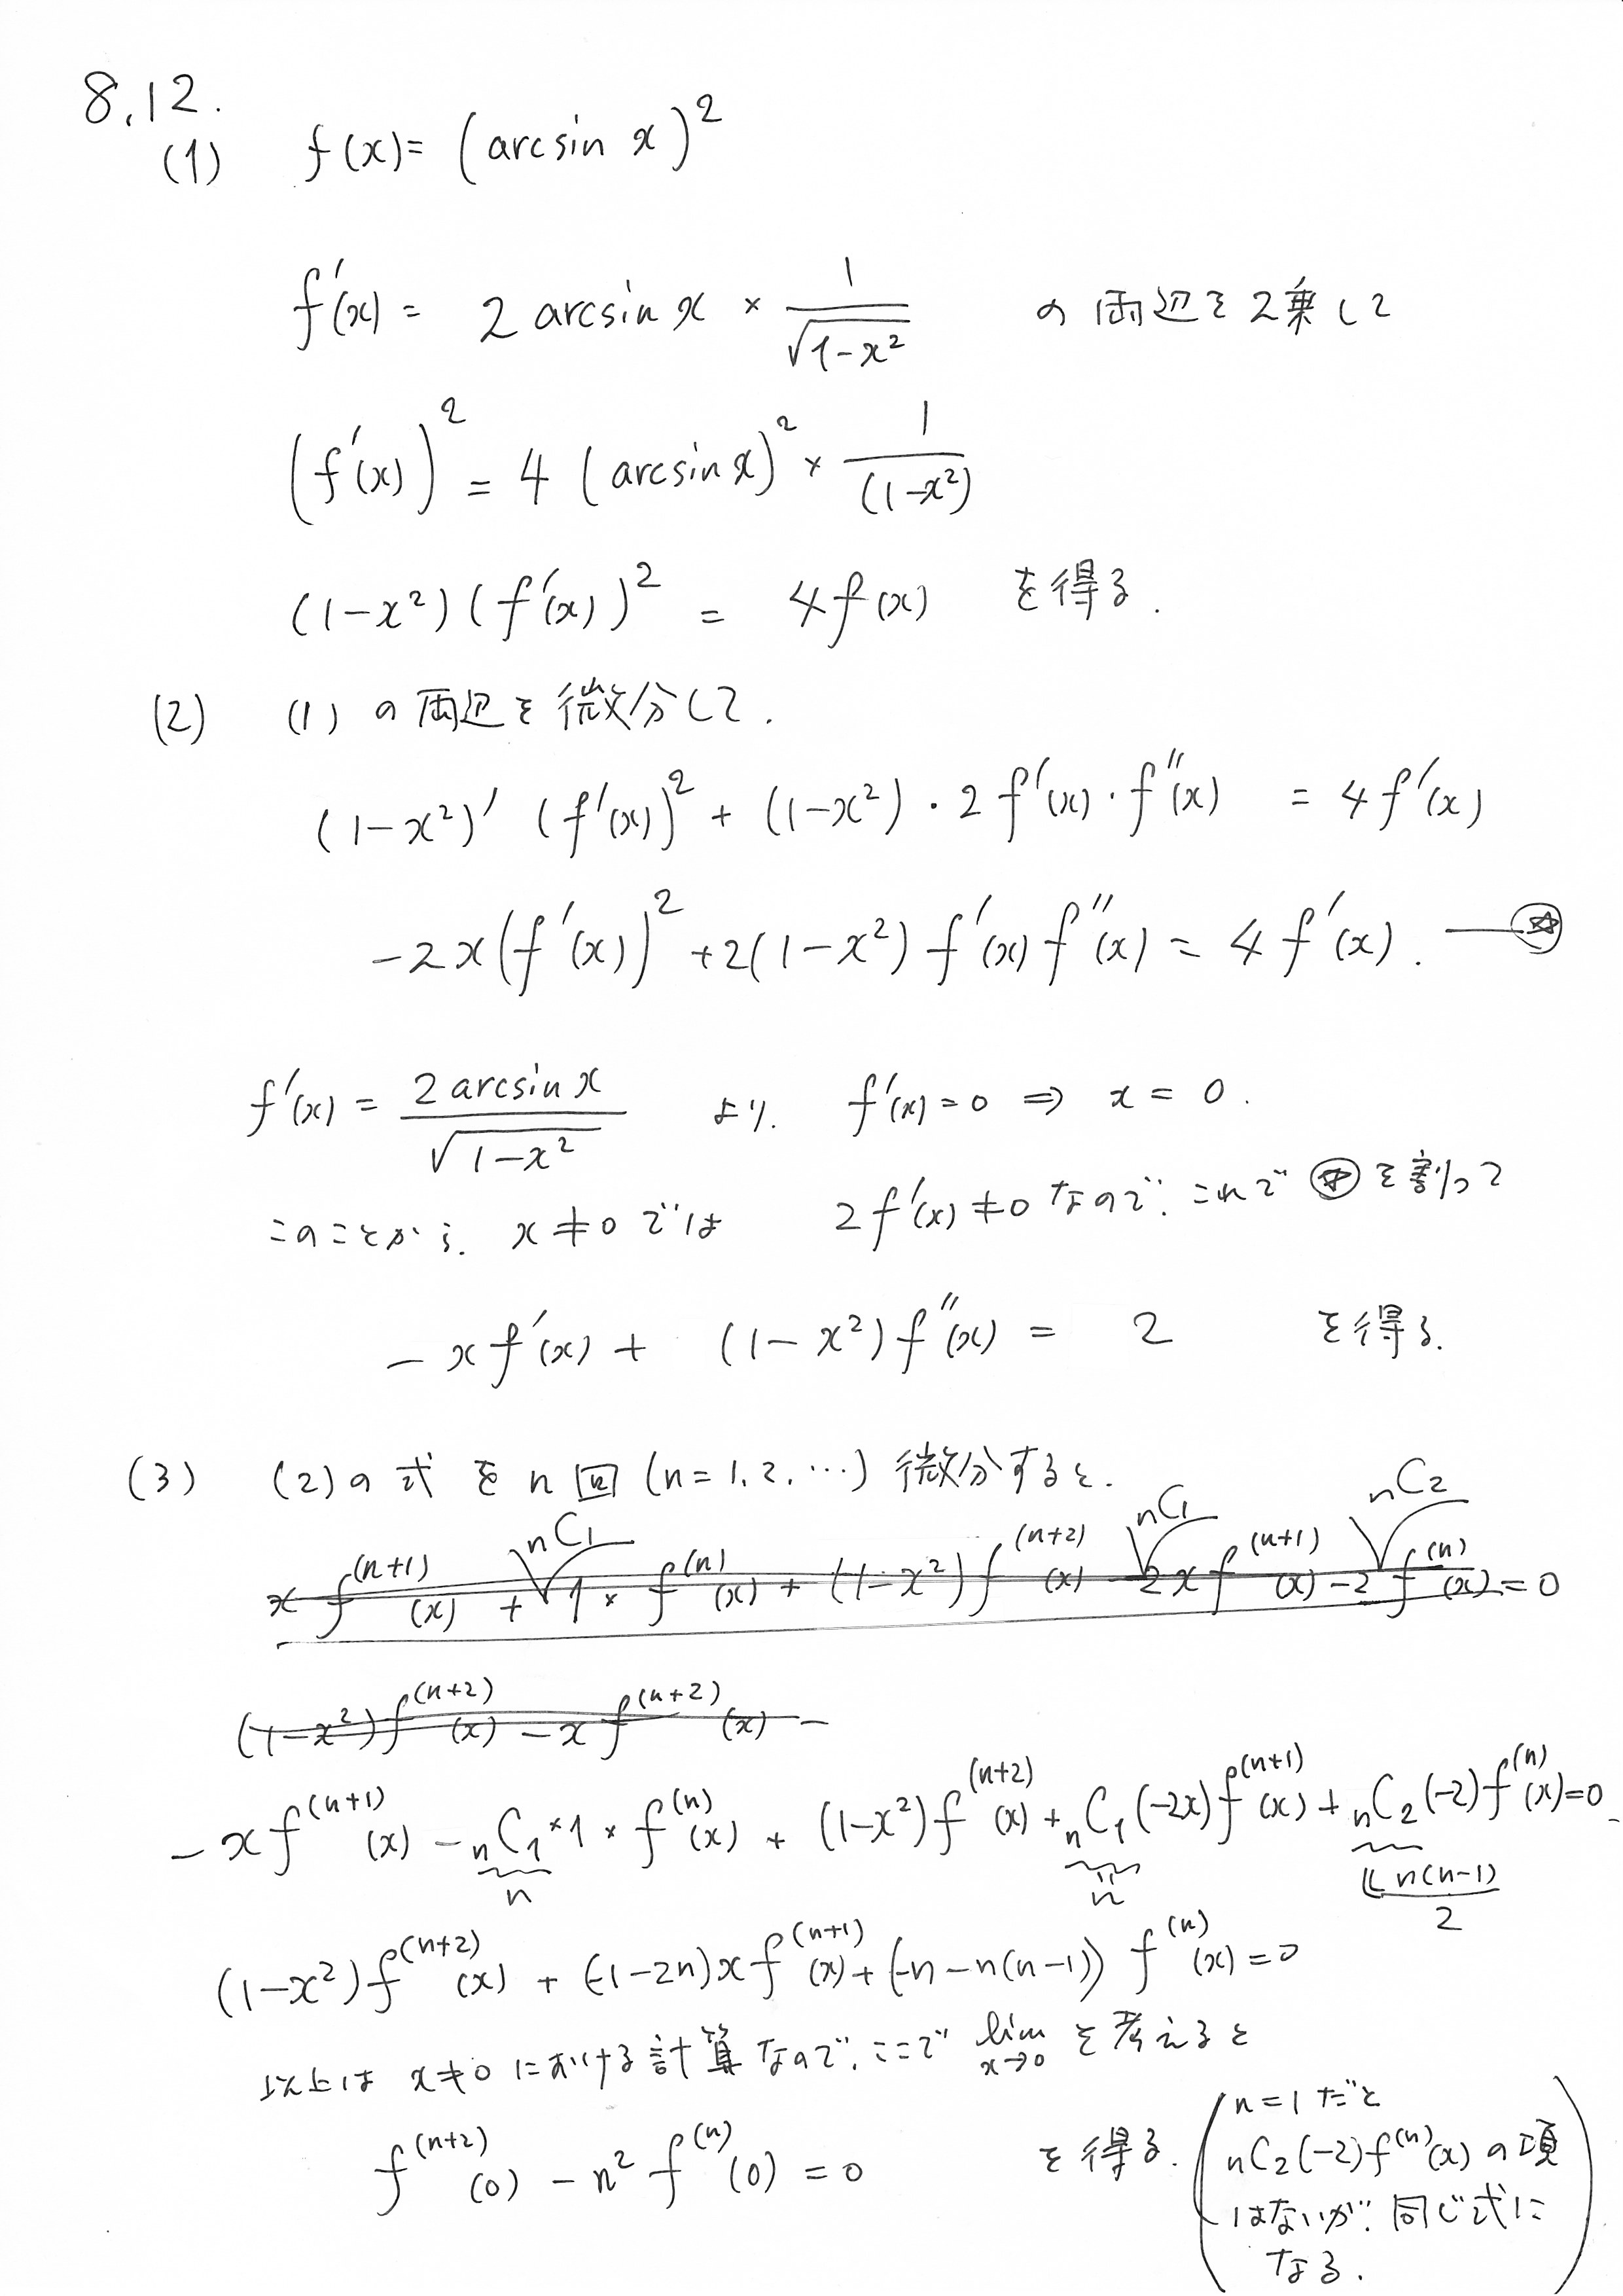 8.12.
(1) f(x) = (arcsin x)^2
f'(x) = 2 arcsin x × 1/√(1-x^2) の両辺を2乗して
(f'(x))^2 = 4 (arcsin x)^2 × 1/(1-x^2)
(1-x^2)(f'(x))^2 = 4f(x) を得る.
(2) (1)の両辺を微分して.
(1-x^2)' (f'(x))^2 + (1-x^2)・2f'(x)・f''(x) = 4f'(x)
-2x(f'(x))^2 + 2(1-x^2) f'(x) f''(x) = 4f'(x). —☆
f'(x) = 2 arcsin x/√(1-x^2) より. f'(x)=0 ⇒ x = 0.
このことから. x≠0では 2f'(x)≠0なので. これで ☆を割って
-xf'(x) + (1-x^2)f''(x) = 2 を得る.
(3) (2)の式をn回(n=1,2,…)微分すると.
nC1 nC1 nC2
x f^(n+1)(x) + 1 × f^(n)(x) + (1-x^2)f^(n+2)(x) - 2xf^(n+1)(x) - 2f^(n)(x) = 0
(1-x^2)f^(n+2)(x) - xf^(n+2)(x) -
-xf^(n+1)(x) - nC1×1×f^(n)(x) + (1-x^2)f^(n+2)(x) + nC1(-2x)f^(n+1)(x) + nC2(-2)f^(n)(x)=0.
n n n(n-1)/2
(1-x^2)f^(n+2)(x) + (-1-2n)xf^(n+1)(x) + (-n-n(n-1)) f^(n)(x)=0
以上は x≠0における計算なので. ここで lim x→0 を考えると
f^(n+2)(0) - n^2 f^(n)(0) = 0 を得る.
(n=1だと
nC2(-2)f^(n)(x)の項
はないが. 同じ式に
なる.)